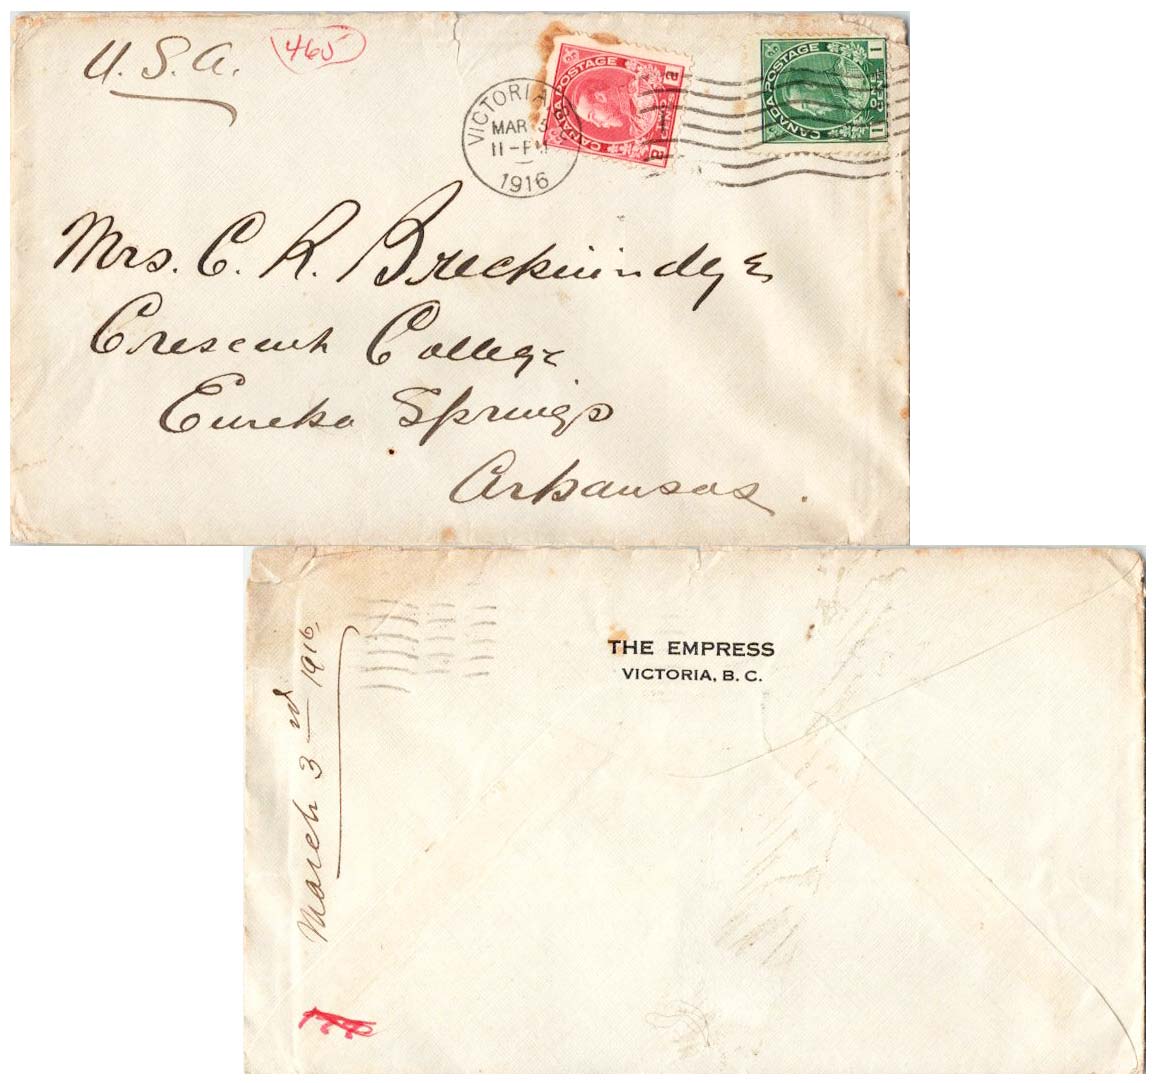 U.S.A.
465
VICTORIA
MAR 3
11-PM
1916
CANADA POSTAGE
2 CENTS 2
CANADA POSTAGE
1 ONE CENT 1
Mrs. C. R. Breckinridge
Crescent College
Eureka Springs
Arkansas.
THE EMPRESS
VICTORIA, B. C.
March 3rd 1916